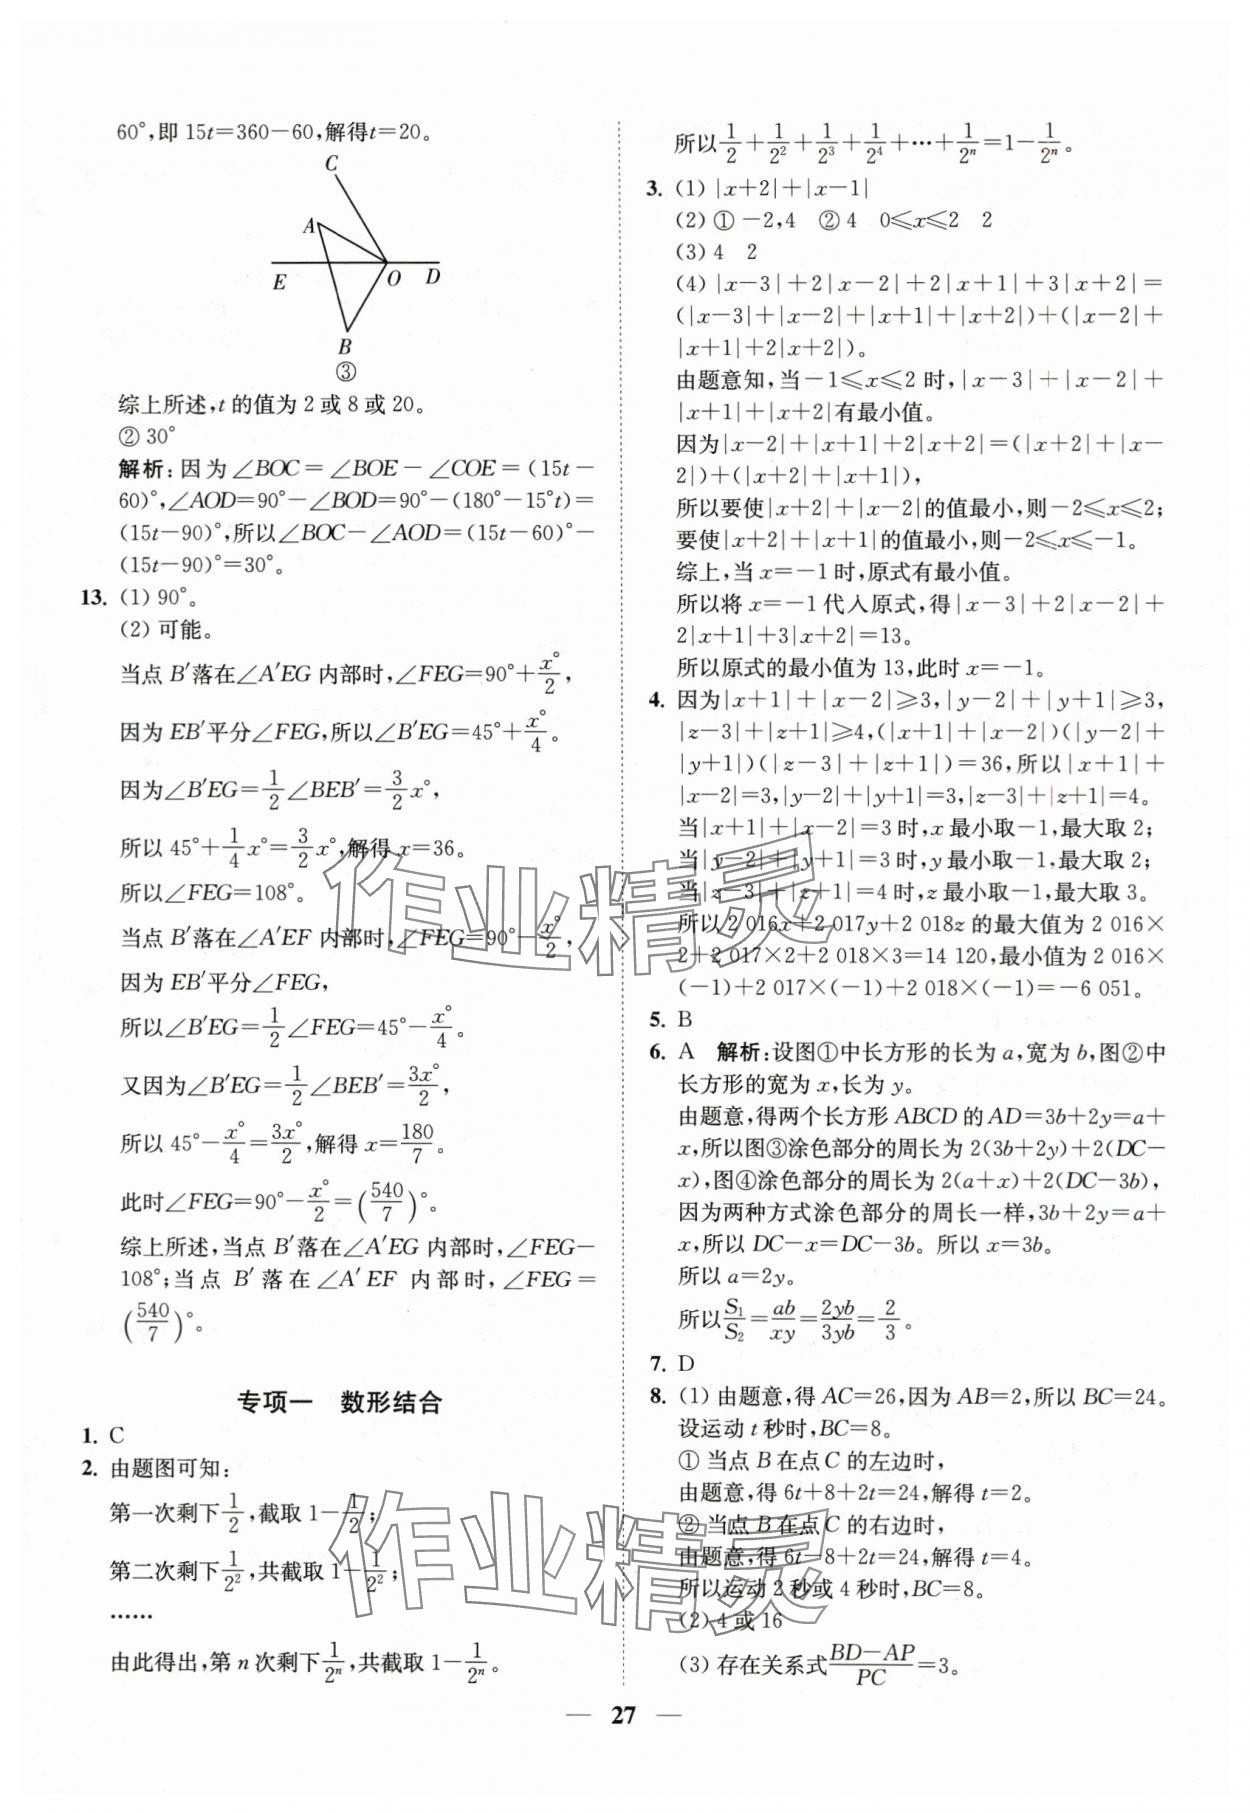 60°,即 15t=360-60,解得t=20。
C
A
E
O
D
B
③
综上所述,t 的值为 2 或 8 或 20。
② 30°
解析:因为∠BOC=∠BOE-∠COE=(15t-
60)°,∠AOD=90°-∠BOD=90°-(180°-15°t)=
(15t-90)°,所以∠BOC-∠AOD=(15t-60)°-
(15t-90)°=30°。
13. (1) 90°。
(2) 可能。
当点 B′落在∠A′EG 内部时,∠FEG=90°+x°/2,
因为 EB′平分∠FEG,所以∠B′EG=45°+x°/4。
因为∠B′EG=1/2∠BEB′=3/2x°,
所以 45°+1/4x°=3/2x°,解得 x=36。
所以∠FEG=108°。
当点 B′落在∠A′EF 内部时,∠FEG=90°-x°/2,
因为 EB′平分∠FEG,
所以∠B′EG=1/2∠FEG=45°-x°/4。
又因为∠B′EG=1/2∠BEB′=3x°/2,
所以 45°-x°/4=3x°/2,解得 x=180/7。
此时∠FEG=90°-x°/2=(540/7)°。
综上所述,当点 B′落在∠A′EG 内部时,∠FEG-
108°;当点 B′落在∠A′EF 内部时,∠FEG=
(540/7)°。
专项一 数形结合
1. C
2. 由题图可知:
第一次剩下1/2,截取 1-1/2;
第二次剩下1/2²,共截取 1-1/2²;
……
由此得出,第 n 次剩下1/2ⁿ,共截取 1-1/2ⁿ。
所以1/2+1/2²+1/2³+1/2⁴+…+1/2ⁿ=1-1/2ⁿ。
3. (1) |x+2|+|x-1|
(2) ① -2,4 ② 4 0≤x≤2 2
(3) 4 2
(4) |x-3|+2|x-2|+2|x+1|+3|x+2|=
(|x-3|+|x-2|+|x+1|+|x+2|)+(|x-2|+
|x+1|+2|x+2|)。
由题意知,当-1≤x≤2 时,|x-3|+|x-2|+
|x+1|+|x+2|有最小值。
因为|x-2|+|x+1|+2|x+2|=(|x+2|+|x-
2|)+(|x+2|+|x+1|),
所以要使|x+2|+|x-2|的值最小,则-2≤x≤2;
要使|x+2|+|x+1|的值最小,则-2≤x≤-1。
综上,当 x=-1 时,原式有最小值。
所以将 x=-1 代入原式,得|x-3|+2|x-2|+
2|x+1|+3|x+2|=13。
所以原式的最小值为 13,此时 x=-1。
4. 因为|x+1|+|x-2|≥3,|y-2|+|y+1|≥3,
|z-3|+|z+1|≥4,(|x+1|+|x-2|)(|y-2|+
|y+1|)(|z-3|+|z+1|)=36,所以|x+1|+
|x-2|=3,|y-2|+|y+1|=3,|z-3|+|z+1|=4。
当|x+1|+|x-2|=3 时,x 最小取-1,最大取 2;
当|y-2|+|y+1|=3 时,y 最小取-1,最大取 2;
当|z-3|+|z+1|=4 时,z 最小取-1,最大取 3。
所以 2 016x+2 017y+2 018z 的最大值为 2 016×
2+2 017×2+2 018×3=14 120,最小值为 2 016×
(-1)+2 017×(-1)+2 018×(-1)=-6 051。
5. B
6. A 解析:设图①中长方形的长为 a,宽为 b,图②中
长方形的宽为 x,长为 y。
由题意,得两个长方形 ABCD 的 AD=3b+2y=a+
x,所以图③涂色部分的周长为 2(3b+2y)+2(DC-
x),图④涂色部分的周长为 2(a+x)+2(DC-3b),
因为两种方式涂色部分的周长一样,3b+2y=a+
x,所以 DC-x=DC-3b。所以 x=3b。
所以 a=2y。
所以S₁/S₂=ab/xy=2yb/3yb=2/3。
7. D
8. (1) 由题意,得 AC=26,因为 AB=2,所以 BC=24。
设运动 t 秒时,BC=8。
① 当点 B 在点 C 的左边时,
由题意,得 6t+8+2t=24,解得 t=2。
② 当点 B 在点 C 的右边时,
由题意,得 6t-8+2t=24,解得 t=4。
所以运动 2 秒或 4 秒时,BC=8。
(2) 4 或 16
(3) 存在关系式(BD-AP)/PC=3。
— 27 —
作业精灵
作业精灵